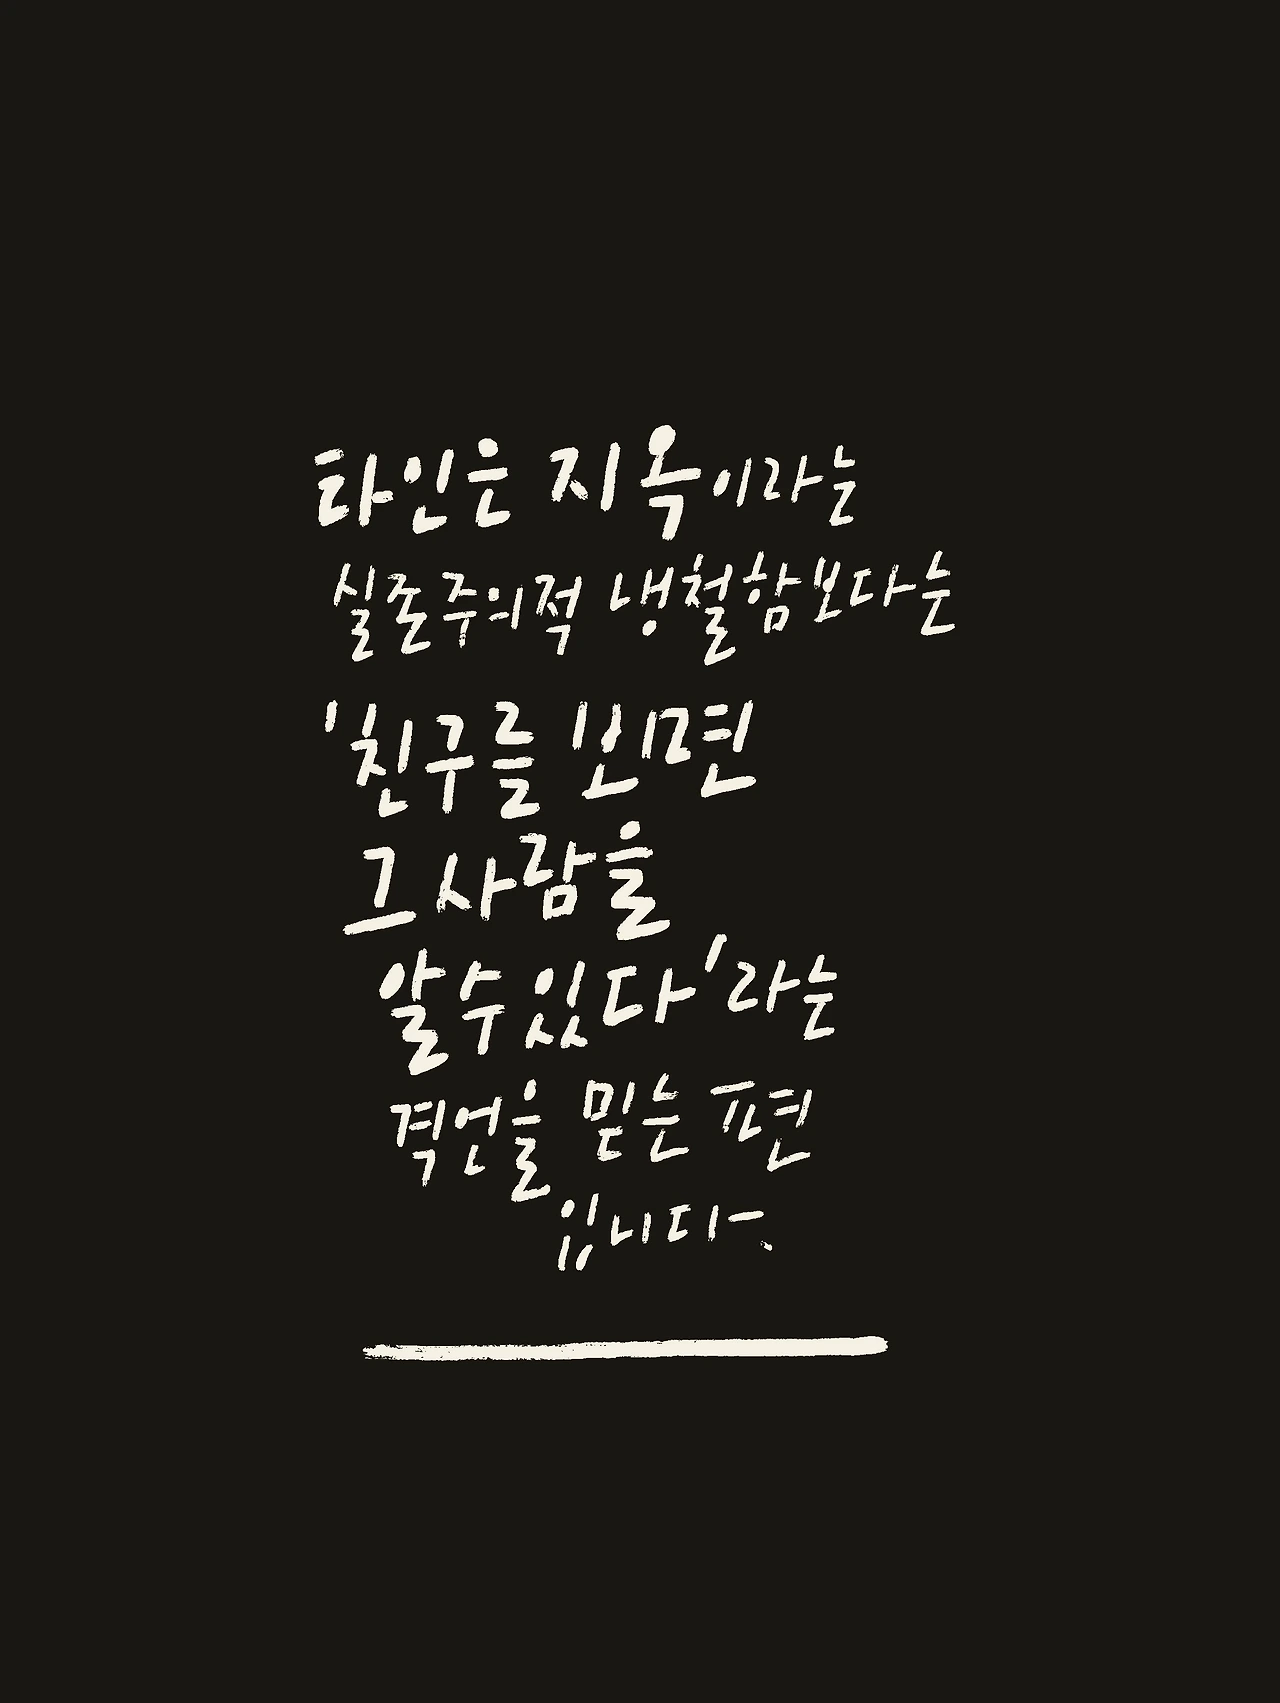 타인은 지옥이라는
실존주의적 냉철함보다는
'친구를 보면
그 사람을
알 수 있다'라는
격언을 믿는 편
입니다.